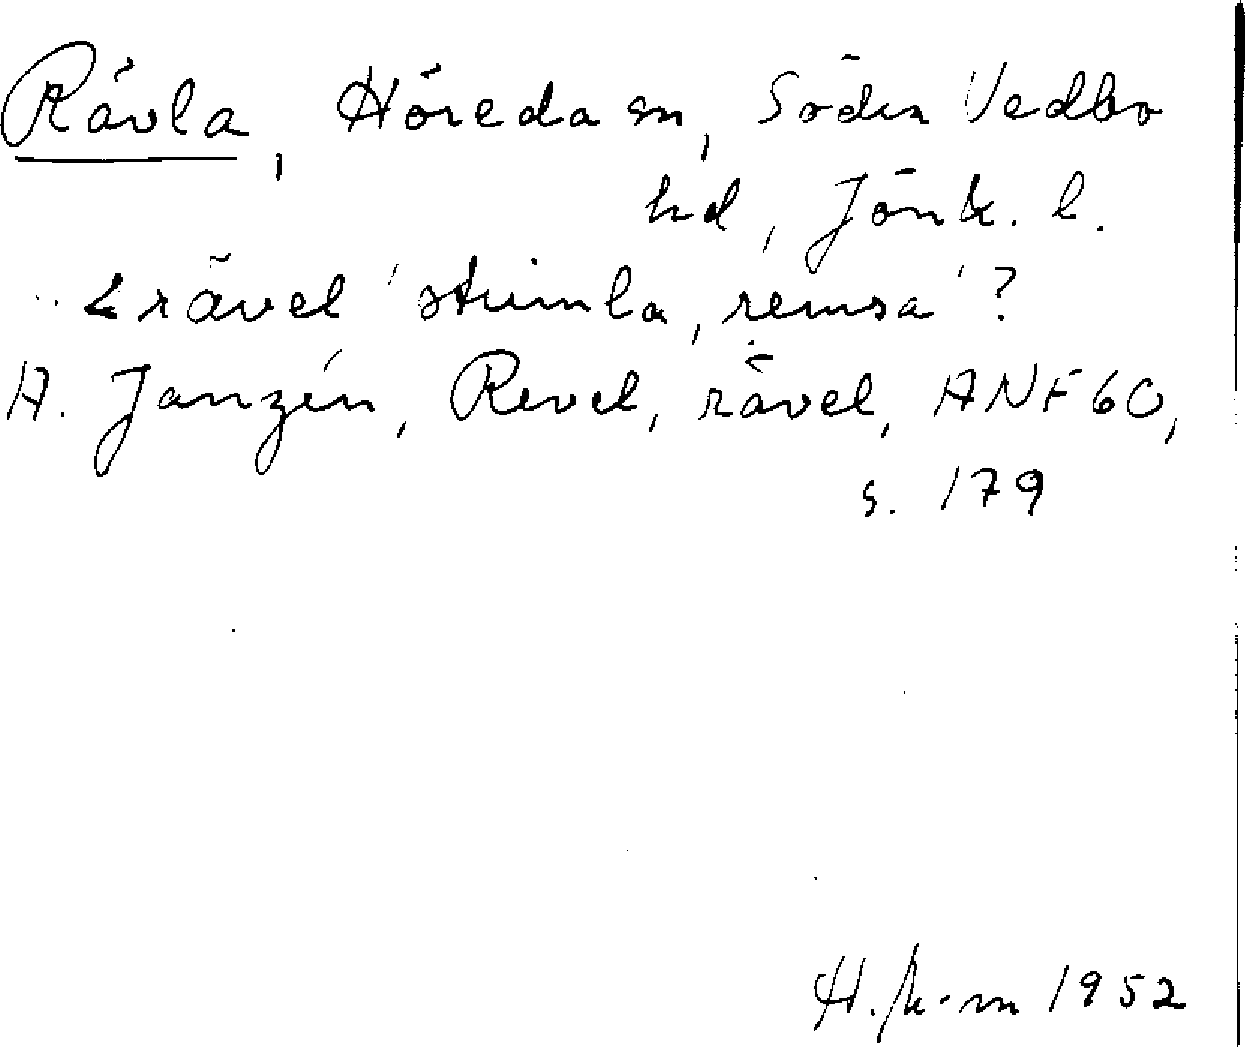 Rävla, Höreda sn, Söder Vedbo
hd, Jönk. l.
< rävel 'strimla, remsa'?
A. Janzén, Revel, rävel, ANF 60,
s. 179
1952